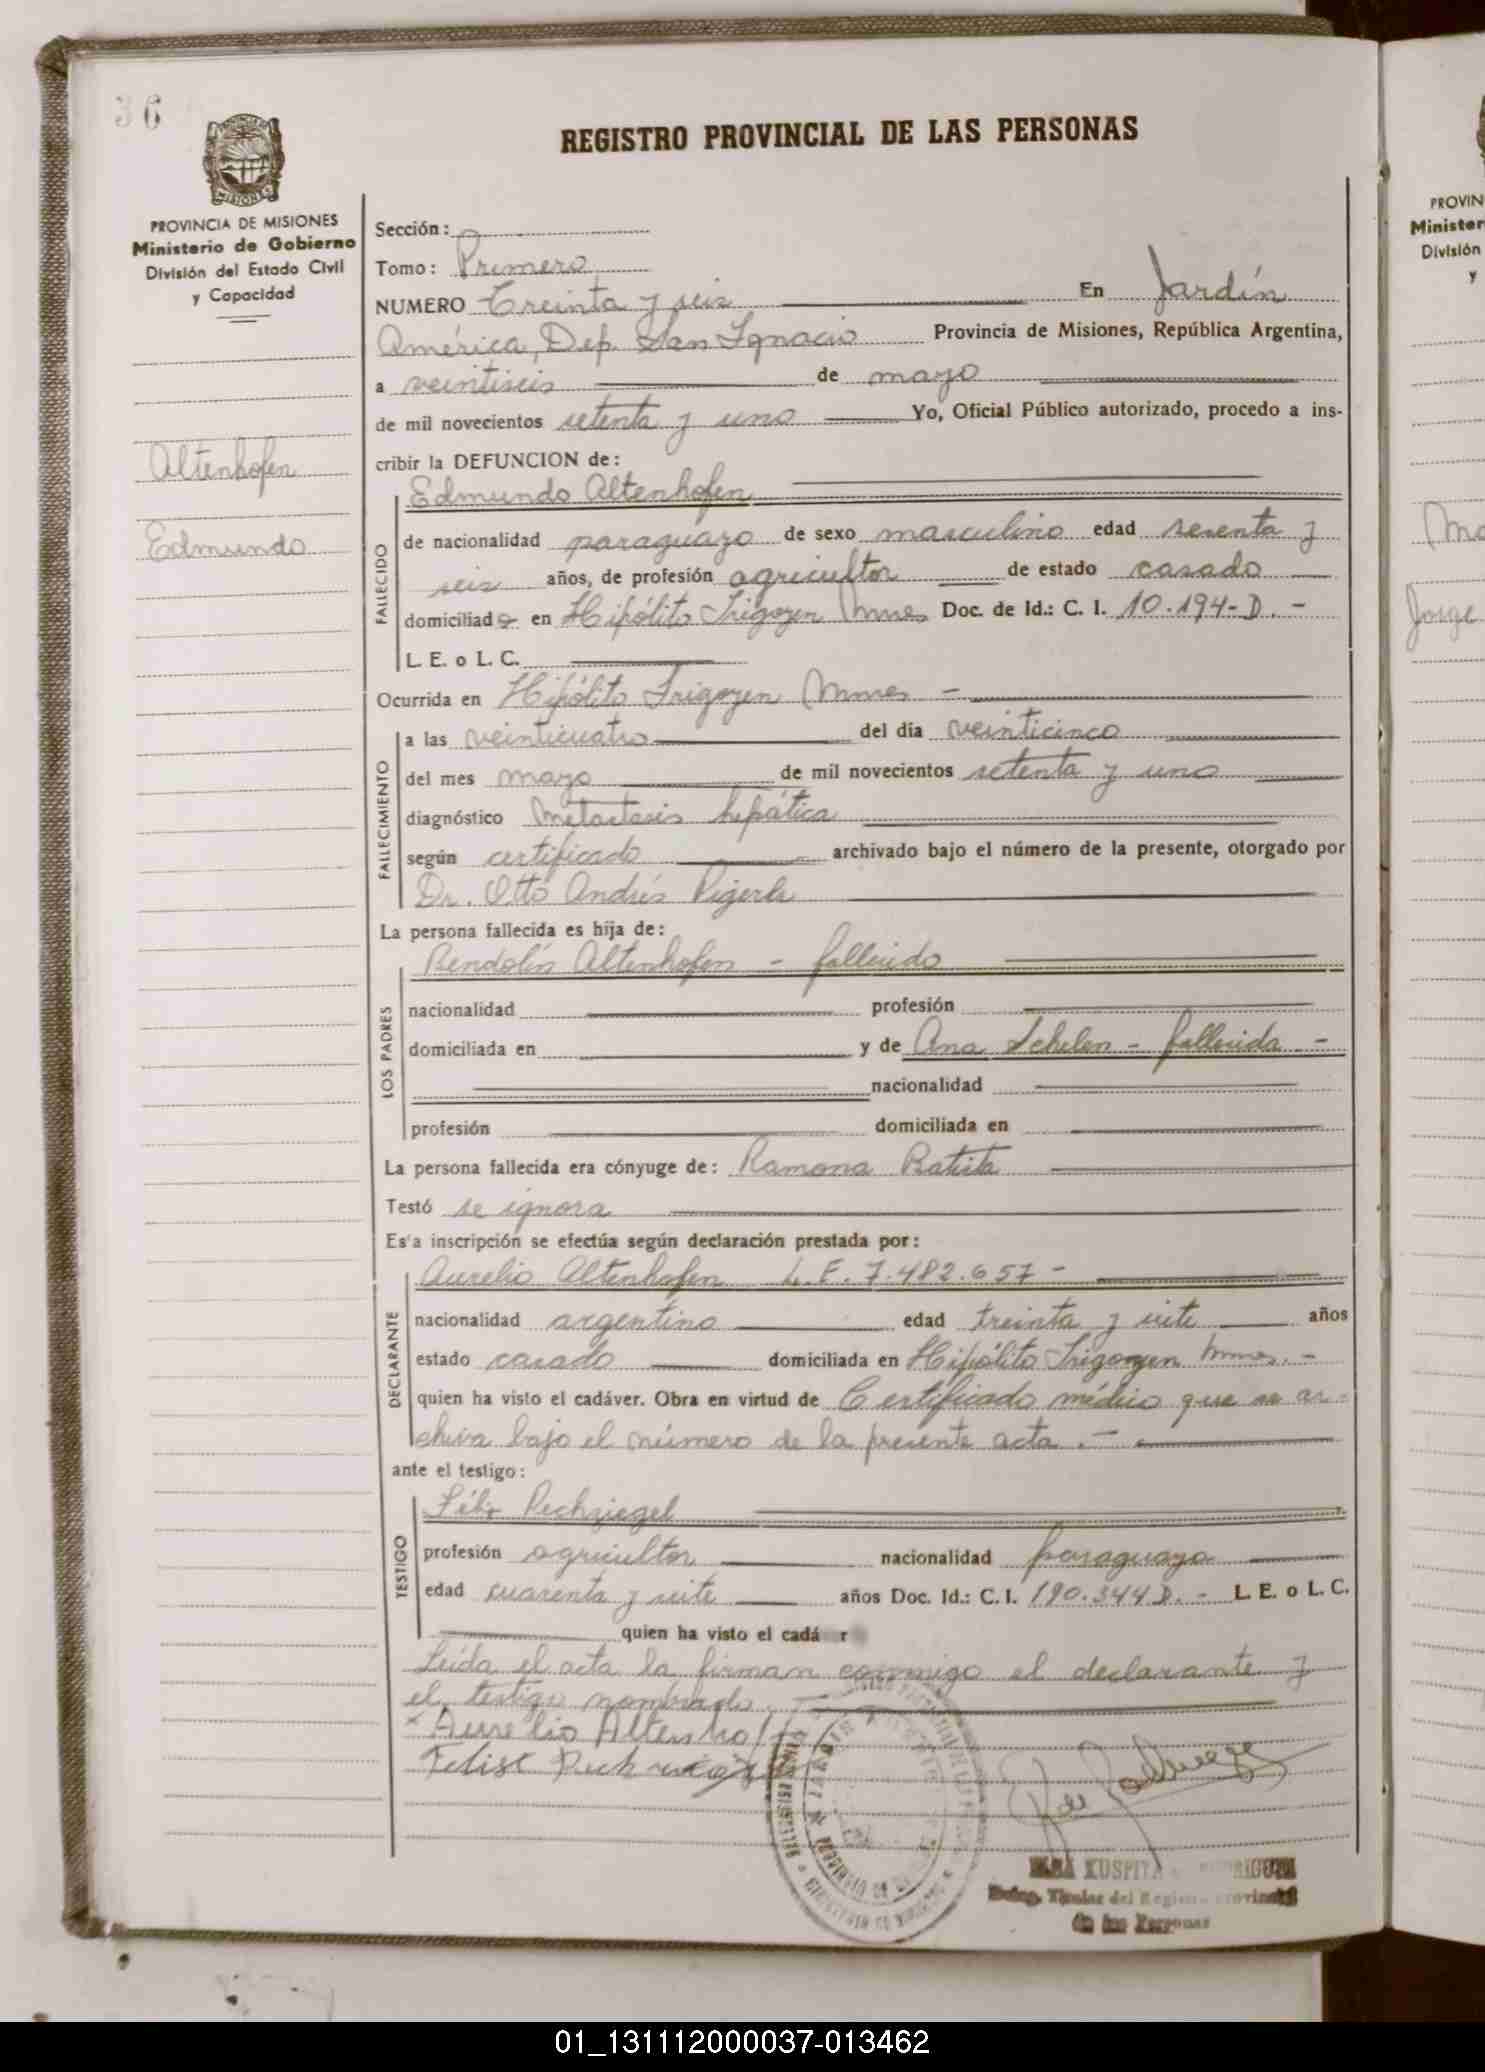 36
REGISTRO PROVINCIAL DE LAS PERSONAS
PROVINCIA DE MISIONES
Ministerio de Gobierno
División del Estado Civil
y Capacidad
Altenhofen
Edmundo
Sección:
Tomo: Primero
NUMERO Treinta y seis En Jardín
América, Dep. San Ignacio Provincia de Misiones, República Argentina,
a veintiseis de mayo
de mil novecientos setenta y uno Yo, Oficial Público autorizado, procedo a ins-
cribir la DEFUNCION de:
FALLECIDO
Edmundo Altenhofen
de nacionalidad paraguayo de sexo masculino edad sesenta y
seis años, de profesión agricultor de estado casado
domiciliado en Hipólito Irigoyen Mnes Doc. de Id.: C. I. 10.194-D. -
L. E. o L. C.
Ocurrida en Hipólito Irigoyen Mnes -
FALLECIMIENTO
a las veinticuatro del día veinticinco
del mes mayo de mil novecientos setenta y uno
diagnóstico Metastasis hepática
según certificado archivado bajo el número de la presente, otorgado por
Dr. Otto Andrés
La persona fallecida es hija de:
LOS PADRES
Altenhofen - fallecido
nacionalidad profesión
domiciliada en y de Ana Schelen - fallecida -
nacionalidad
profesión domiciliada en
La persona fallecida era cónyuge de: Ramona Batista
Testó se ignora
Es'a inscripción se efectúa según declaración prestada por:
DECLARANTE
Aurelio Altenhofen L. E. 7.482.657 -
nacionalidad argentino edad treinta y siete años
estado casado domiciliada en Hipólito Irigoyen Mnes. -
quien ha visto el cadáver. Obra en virtud de Certificado médico que se ar-
chiva bajo el número de la presente acta. -
ante el testigo:
TESTIGO
Félix
profesión agricultor nacionalidad paraguayo
edad cuarenta y siete años Doc. Id.: C. I. 190.344 D. - L. E. o L. C.
quien ha visto el cadá r
Leída el acta la firman conmigo el declarante y
el testigo nombrado.
x Aurelio Altenhof
de las Personas
PROVIN
Minister
División
y
Jorge
01_131112000037-013462